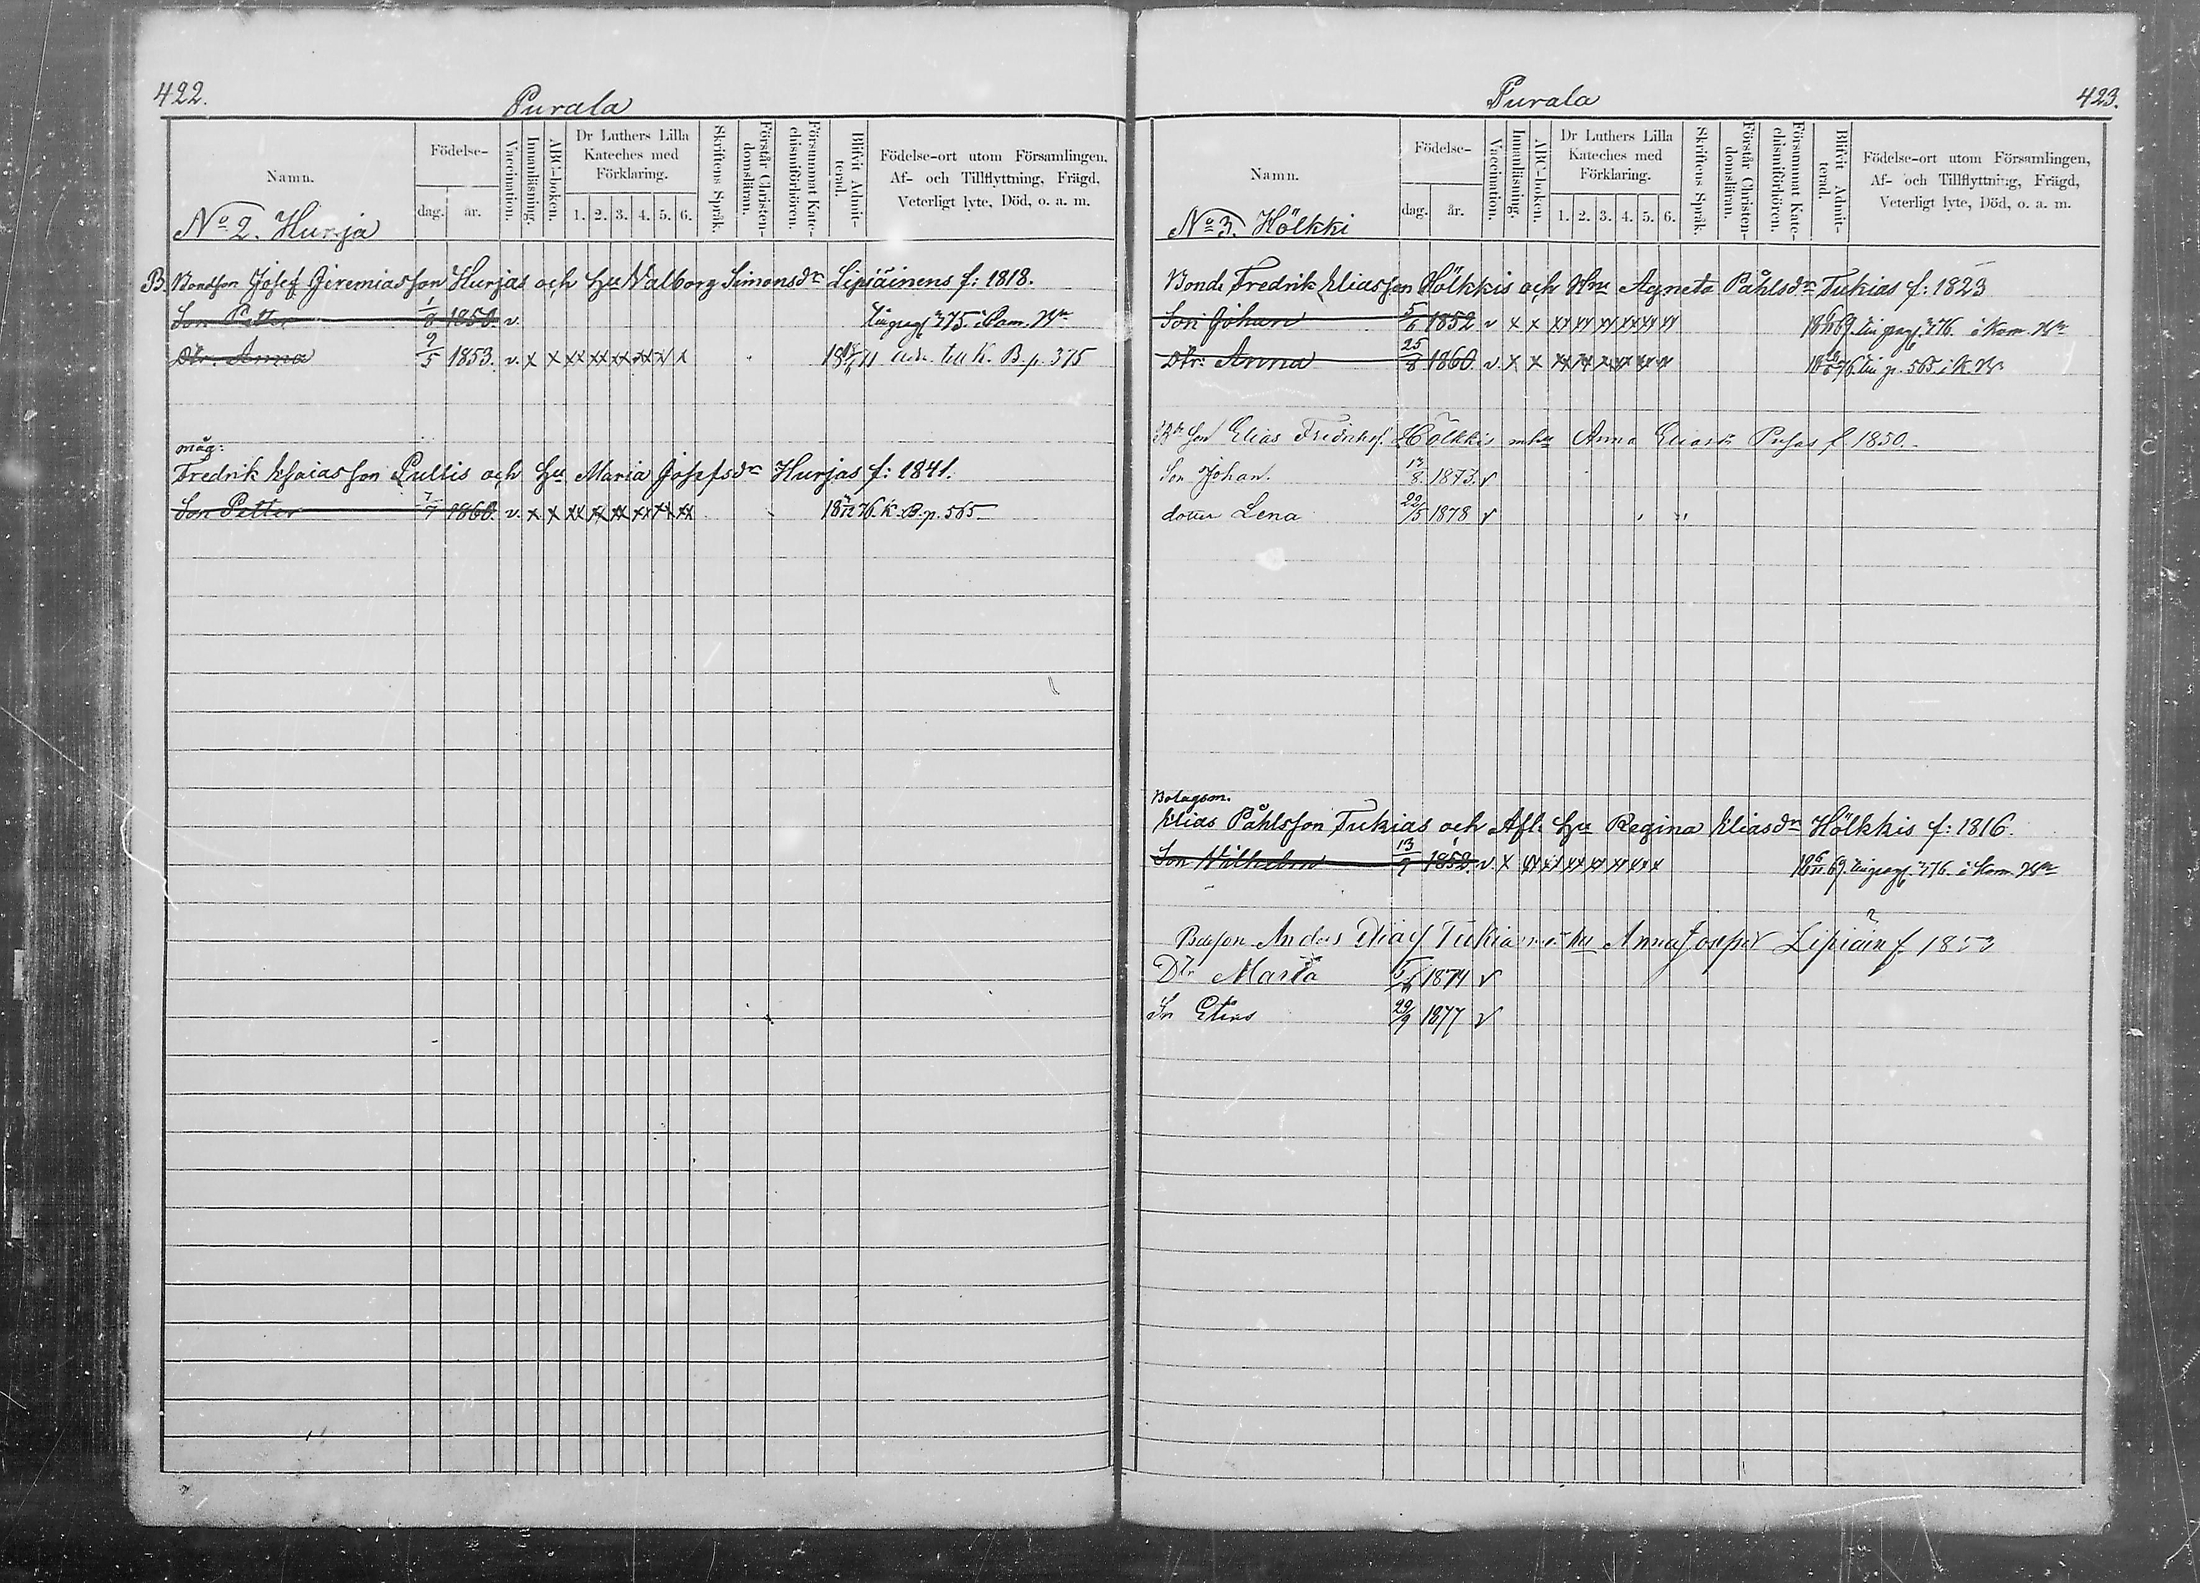 422.
Purala
Namn.
Födelse-
dag. år.
Vaccination.
Innanläsning.
ABC-boken.
Dr Luthers Lilla
Kateches med
Förklaring.
1. 2. 3. 4. 5. 6.
Skriftens Språk.
Förstår Christen-
domsläran.
Försummat Kate-
chismiförhören.
Blifvit Admit-
terad.
Födelse-ort utom Församlingen,
Af- och Tillflyttning, Frägd,
Veterligt lyte, Död, o. a. m.
No 2. Hurja
B. Bondson Josef Jeremiasson Hurjas och Hu Valborg Simonsdr Lipiäinens f: 1818.
Son Petter 1/8 1850. v.
Dtr. Anna 9/5 1853. v. x x xx xx xx xx v x K. B. p. 375
måg:
Fredrik Esaiasson Pullis och Hu Maria Josefsdr Hurjas f: 1841.
Son Petter 7/7 1860. v. x x xx xx xx xx xx xx 76. K. B. p. 565
423.
Purala
Namn.
Födelse-
dag. år.
Vaccination.
Innanläsning.
ABC-boken.
Dr Luthers Lilla
Kateches med
Förklaring.
1. 2. 3. 4. 5. 6.
Skriftens Språk.
Förstår Christen-
domsläran.
Försummat Kate-
chismiförhören.
Blifvit Admit-
terad.
Födelse-ort utom Församlingen,
Af- och Tillflyttning, Frägd,
Veterligt lyte, Död, o. a. m.
No 3. Hölkki
Bonde Fredrik Eliasson Hölkkis och Hru Agneta Påhlsdr Tukias f: 1823
Son Johan 5/6 1852 v x x xx xx xx xx xx xx
Dtr: Anna 25/8 1860. v. x x xx xx xx xx xx xx p. 565 i K. B.
Son Elias Hölkkis Anna f 1850.
Son Johan. 13/8 1873. v
dotter Lena 22/5 1878 v
Bolagsm.
Elias Påhlsson Tukias och Afl. Hu Regina Eliasdr Hölkkis f: 1816.
Son Wilhelm 13/9 1852. v. x xx xx xx xx xx xx
Anders Tukia Anna Lipiäin f. 1853
Dtr Maria 1874 v
Sn Elias 29/9 1877 v